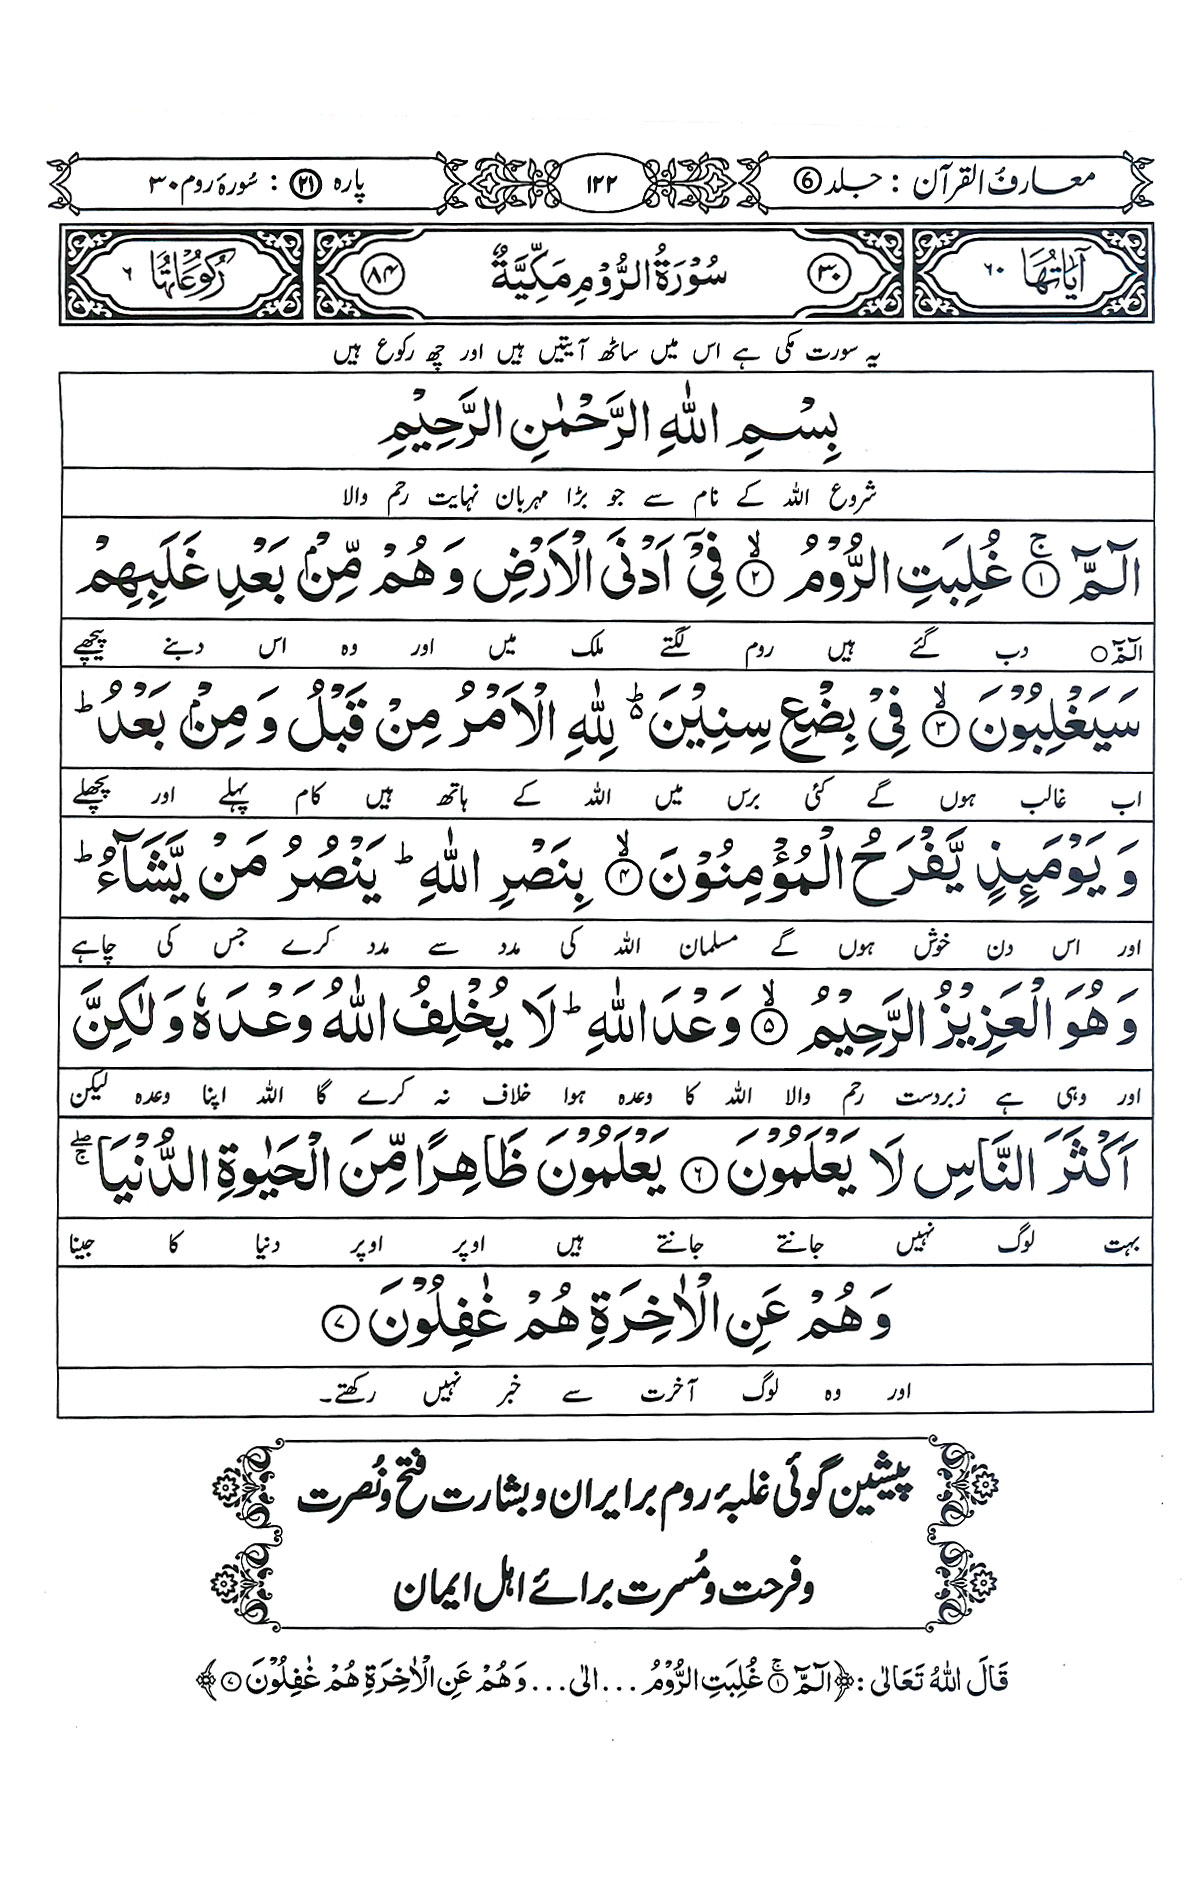 معارف القرآن : جلد ⑥ ۱۲۲ پارہ ۲۱ : سُورۂ روم ۳۰
آيَاتُهَا ۶۰ ۳۰ سُوْرَةُ الرُّوْمِ مَكِّيَّةٌ ۸۴ رُكُوْعَاتُهَا ۶
یہ سورت مکی ہے اس میں ساٹھ آیتیں ہیں اور چھ رکوع ہیں
بِسْمِ اللّٰهِ الرَّحْمٰنِ الرَّحِيْمِ
شروع اللہ کے نام سے جو بڑا مہربان نہایت رحم والا
الٓمّٓ ۚ﴿۱﴾ غُلِبَتِ الرُّوْمُ ۙ﴿۲﴾ فِيْٓ اَدْنَى الْاَرْضِ وَهُمْ مِّنْۢ بَعْدِ غَلَبِهِمْ
الٓمّٓ ○ دب گئے ہیں روم لگتے ملک میں اور وہ اس دبنے پیچھے
سَيَغْلِبُوْنَ ۙ﴿۳﴾ فِيْ بِضْعِ سِنِيْنَ ۬ؕ لِلّٰهِ الْاَمْرُ مِنْ قَبْلُ وَمِنْۢ بَعْدُ ؕ
اب غالب ہوں گے کئی برس میں اللہ کے ہاتھ ہیں کام پہلے اور پچھلے
وَيَوْمَىِٕذٍ يَّفْرَحُ الْمُؤْمِنُوْنَ ۙ﴿۴﴾ بِنَصْرِ اللّٰهِ ؕ يَنْصُرُ مَنْ يَّشَآءُ ؕ
اور اس دن خوش ہوں گے مسلمان اللہ کی مدد سے مدد کرے جس کی چاہے
وَهُوَ الْعَزِيْزُ الرَّحِيْمُ ۙ﴿۵﴾ وَعْدَ اللّٰهِ ؕ لَا يُخْلِفُ اللّٰهُ وَعْدَهٗ وَلٰكِنَّ
اور وہی ہے زبردست رحم والا اللہ کا وعدہ ہوا خلاف نہ کرے گا اللہ اپنا وعدہ لیکن
اَكْثَرَ النَّاسِ لَا يَعْلَمُوْنَ ﴿۶﴾ يَعْلَمُوْنَ ظَاهِرًا مِّنَ الْحَيٰوةِ الدُّنْيَا ۖۚ
بہت لوگ نہیں جانتے جانتے ہیں اوپر اوپر دنیا کا جینا
وَهُمْ عَنِ الْاٰخِرَةِ هُمْ غٰفِلُوْنَ ﴿۷﴾
اور وہ لوگ آخرت سے خبر نہیں رکھتے۔
پیشین گوئی غلبۂ روم بر ایران و بشارت فتح و نُصرت
و فرحت و مُسرت برائے اہل ایمان
قَالَ اللّٰهُ تَعَالٰى : ﴿الٓمّٓ ۚ۱ غُلِبَتِ الرُّوْمُ ... الٰى ... وَهُمْ عَنِ الْاٰخِرَةِ هُمْ غٰفِلُوْنَ ۷﴾